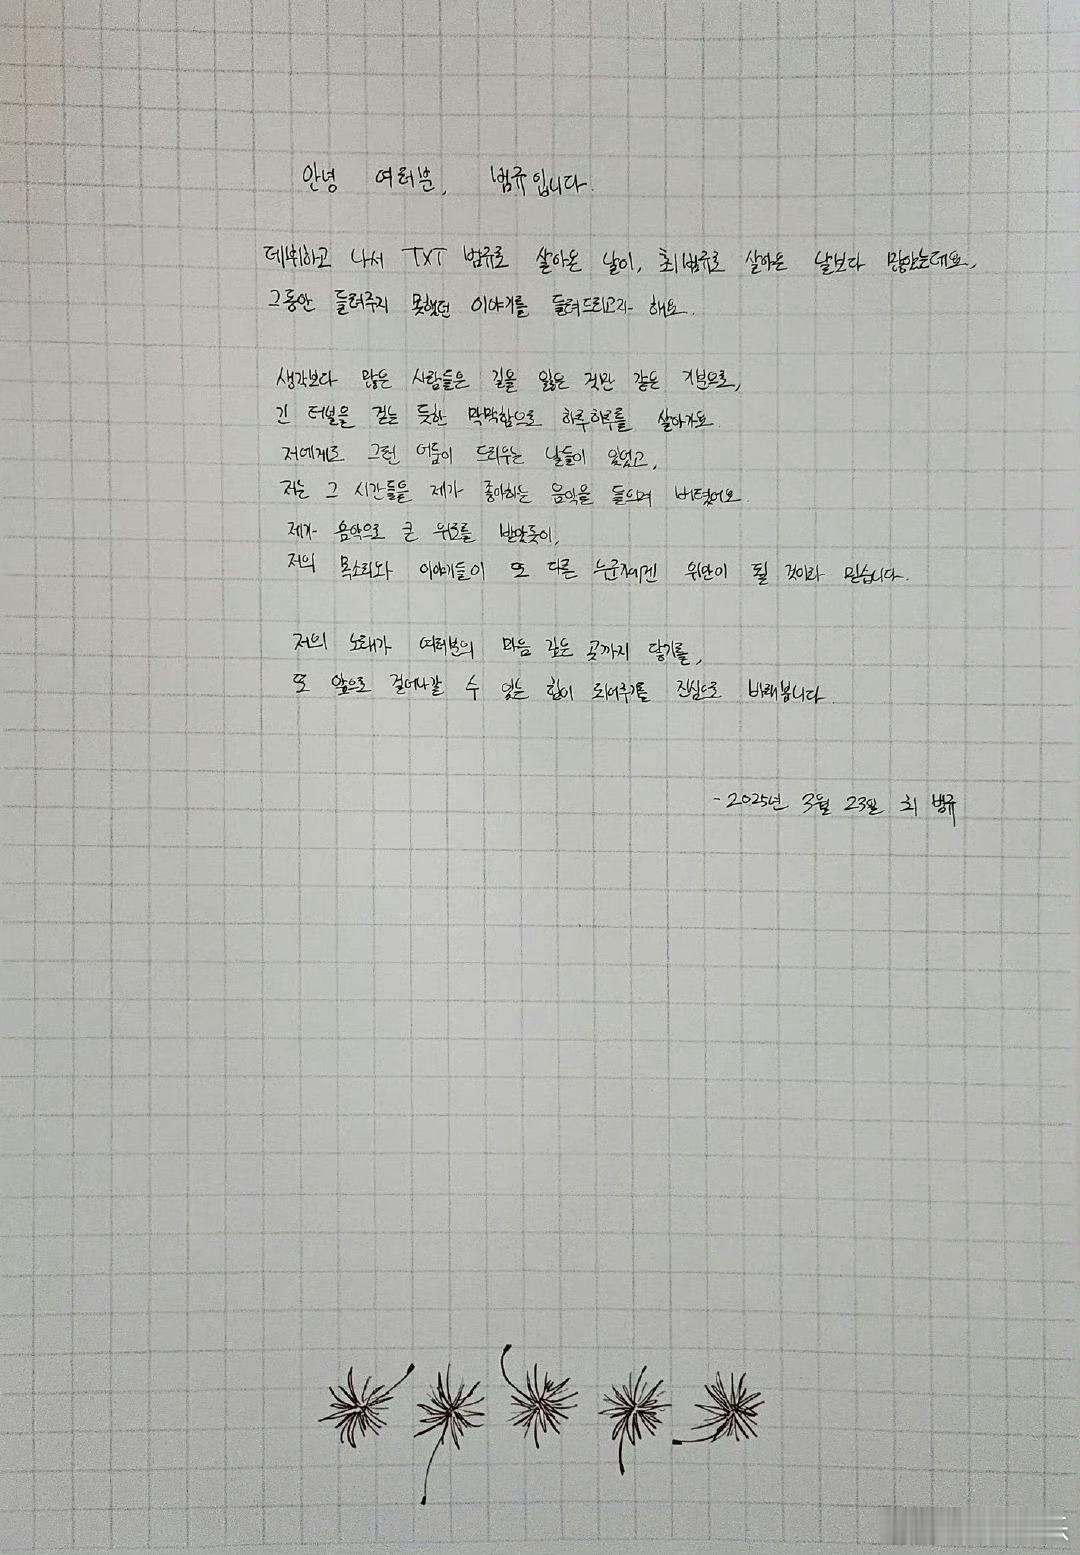 안녕 여러분, 범규입니다.
데뷔하고 나서 TXT 범규로 살아온 날이, 최범규로 살아온 날보다 많았는데요,
그동안 들려주지 못했던 이야기를 들려드리고자 해요.
생각보다 많은 사람들은 길을 잃은 것만 같은 기분으로,
긴 터널을 걷는 듯한 막막함으로 하루하루를 살아가요.
저에게도 그런 어둠이 드리우는 날들이 있었고,
저는 그 시간들을 제가 좋아하는 음악을 들으며 버텼어요.
제가 음악으로 큰 위로를 받았듯이,
저의 목소리와 이야기들이 또 다른 누군가에겐 위안이 될 것이라 믿습니다.
저의 노래가 여러분의 마음 깊은 곳까지 닿기를,
또 앞으로 걸어나갈 수 있는 힘이 되어주기를 진심으로 바래봅니다.
-2025년 3월 23일 최 범규